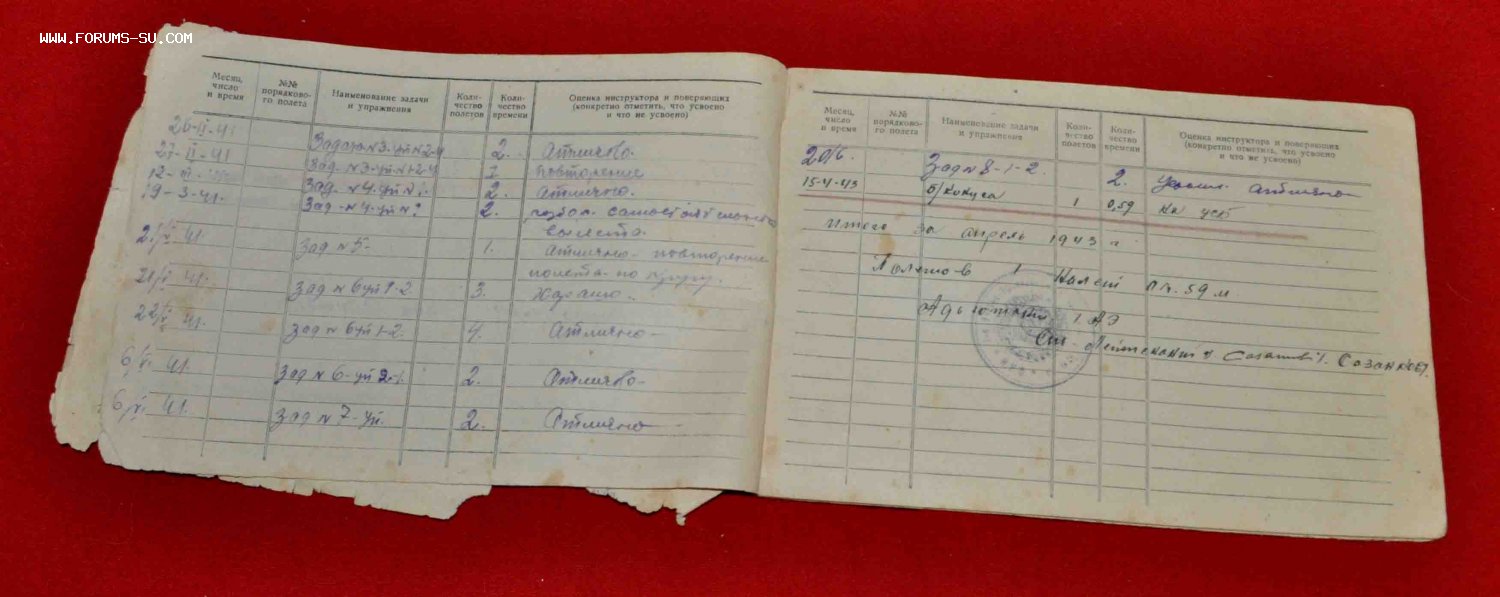 WWW.FORUMS-SU.COM
Месяц, число и время
№№ порядкового полета
Наименование задачи и упражнения
Количество полетов
Количество времени
Оценка инструктора и поверяющих (конкретно отметить, что усвоено и что не усвоено)
26-II-41
Задача №3-уп №2-4 2. Атлично.
27-II-41 Зад-№3-уп №2-4 1 повторение
12-III- Зад-№4-уп №1. 2. Атлично.
19-3-41. Зад-№4-уп №2 2.
вылета.
41. Зад №5- 1. Атлично- повторение
полета-по кругу.
41. Зад №6 уп 1-2 3. Харашо..
41. Зад №6 уп 1-2. 4. Атлично-
6/VI 41. Зад №6-уп 2-1. 2. Атлично-
6/VI 41. Зад №7-уп. 2. Атлично
Месяц, число и время
№№ порядкового полета
Наименование задачи и упражнения
Количество полетов
Количество времени
Оценка инструктора и поверяющих (конкретно отметить, что усвоено и что не усвоено)
20/6. Зад №8-1-2. 2. атлично
15-4-43 1 0,59
Итого за апрель 1943 г
Полетов 1 Налет 0 ч. 59 м
Адъютант 1 АЭ
Ст. Лейтенант